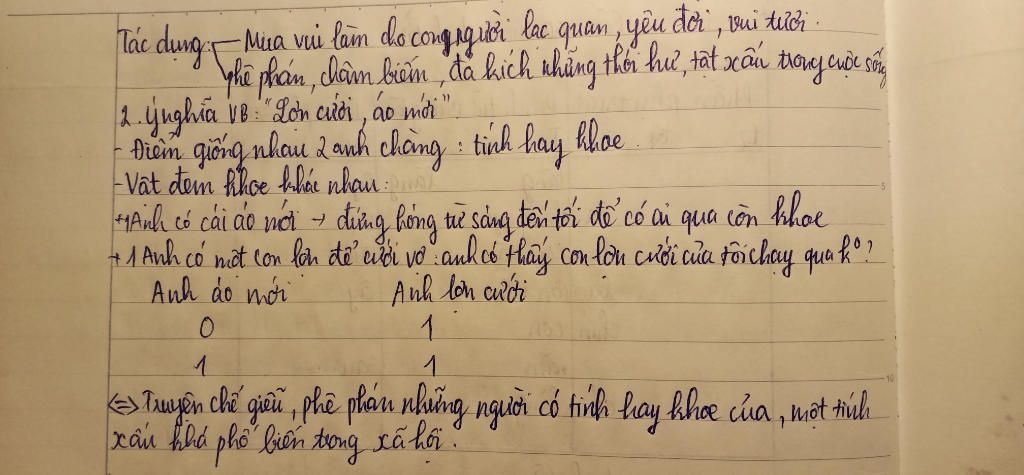 Tác dụng: - Mua vui làm cho con người lạc quan, yêu đời, vui tươi.
phê phán, châm biếm, đả kích những thói hư, tật xấu trong cuộc sống
2. Ý nghĩa VB: "Lợn cưới, áo mới"
- Điểm giống nhau 2 anh chàng: tính hay khoe.
- Vật đem khoe khác nhau:
+ 1 Anh có cái áo mới → đứng hóng từ sáng đến tối để có ai qua còn khoe
+ 1 Anh có một con lợn để cưới vợ: anh có thấy con lợn cưới của tôi chạy qua k°?
Anh áo mới Anh lợn cưới
0 1
1 1
⇔ Truyện chế giễu, phê phán những người có tính hay khoe của, một tính
xấu khá phổ biến trong xã hội.